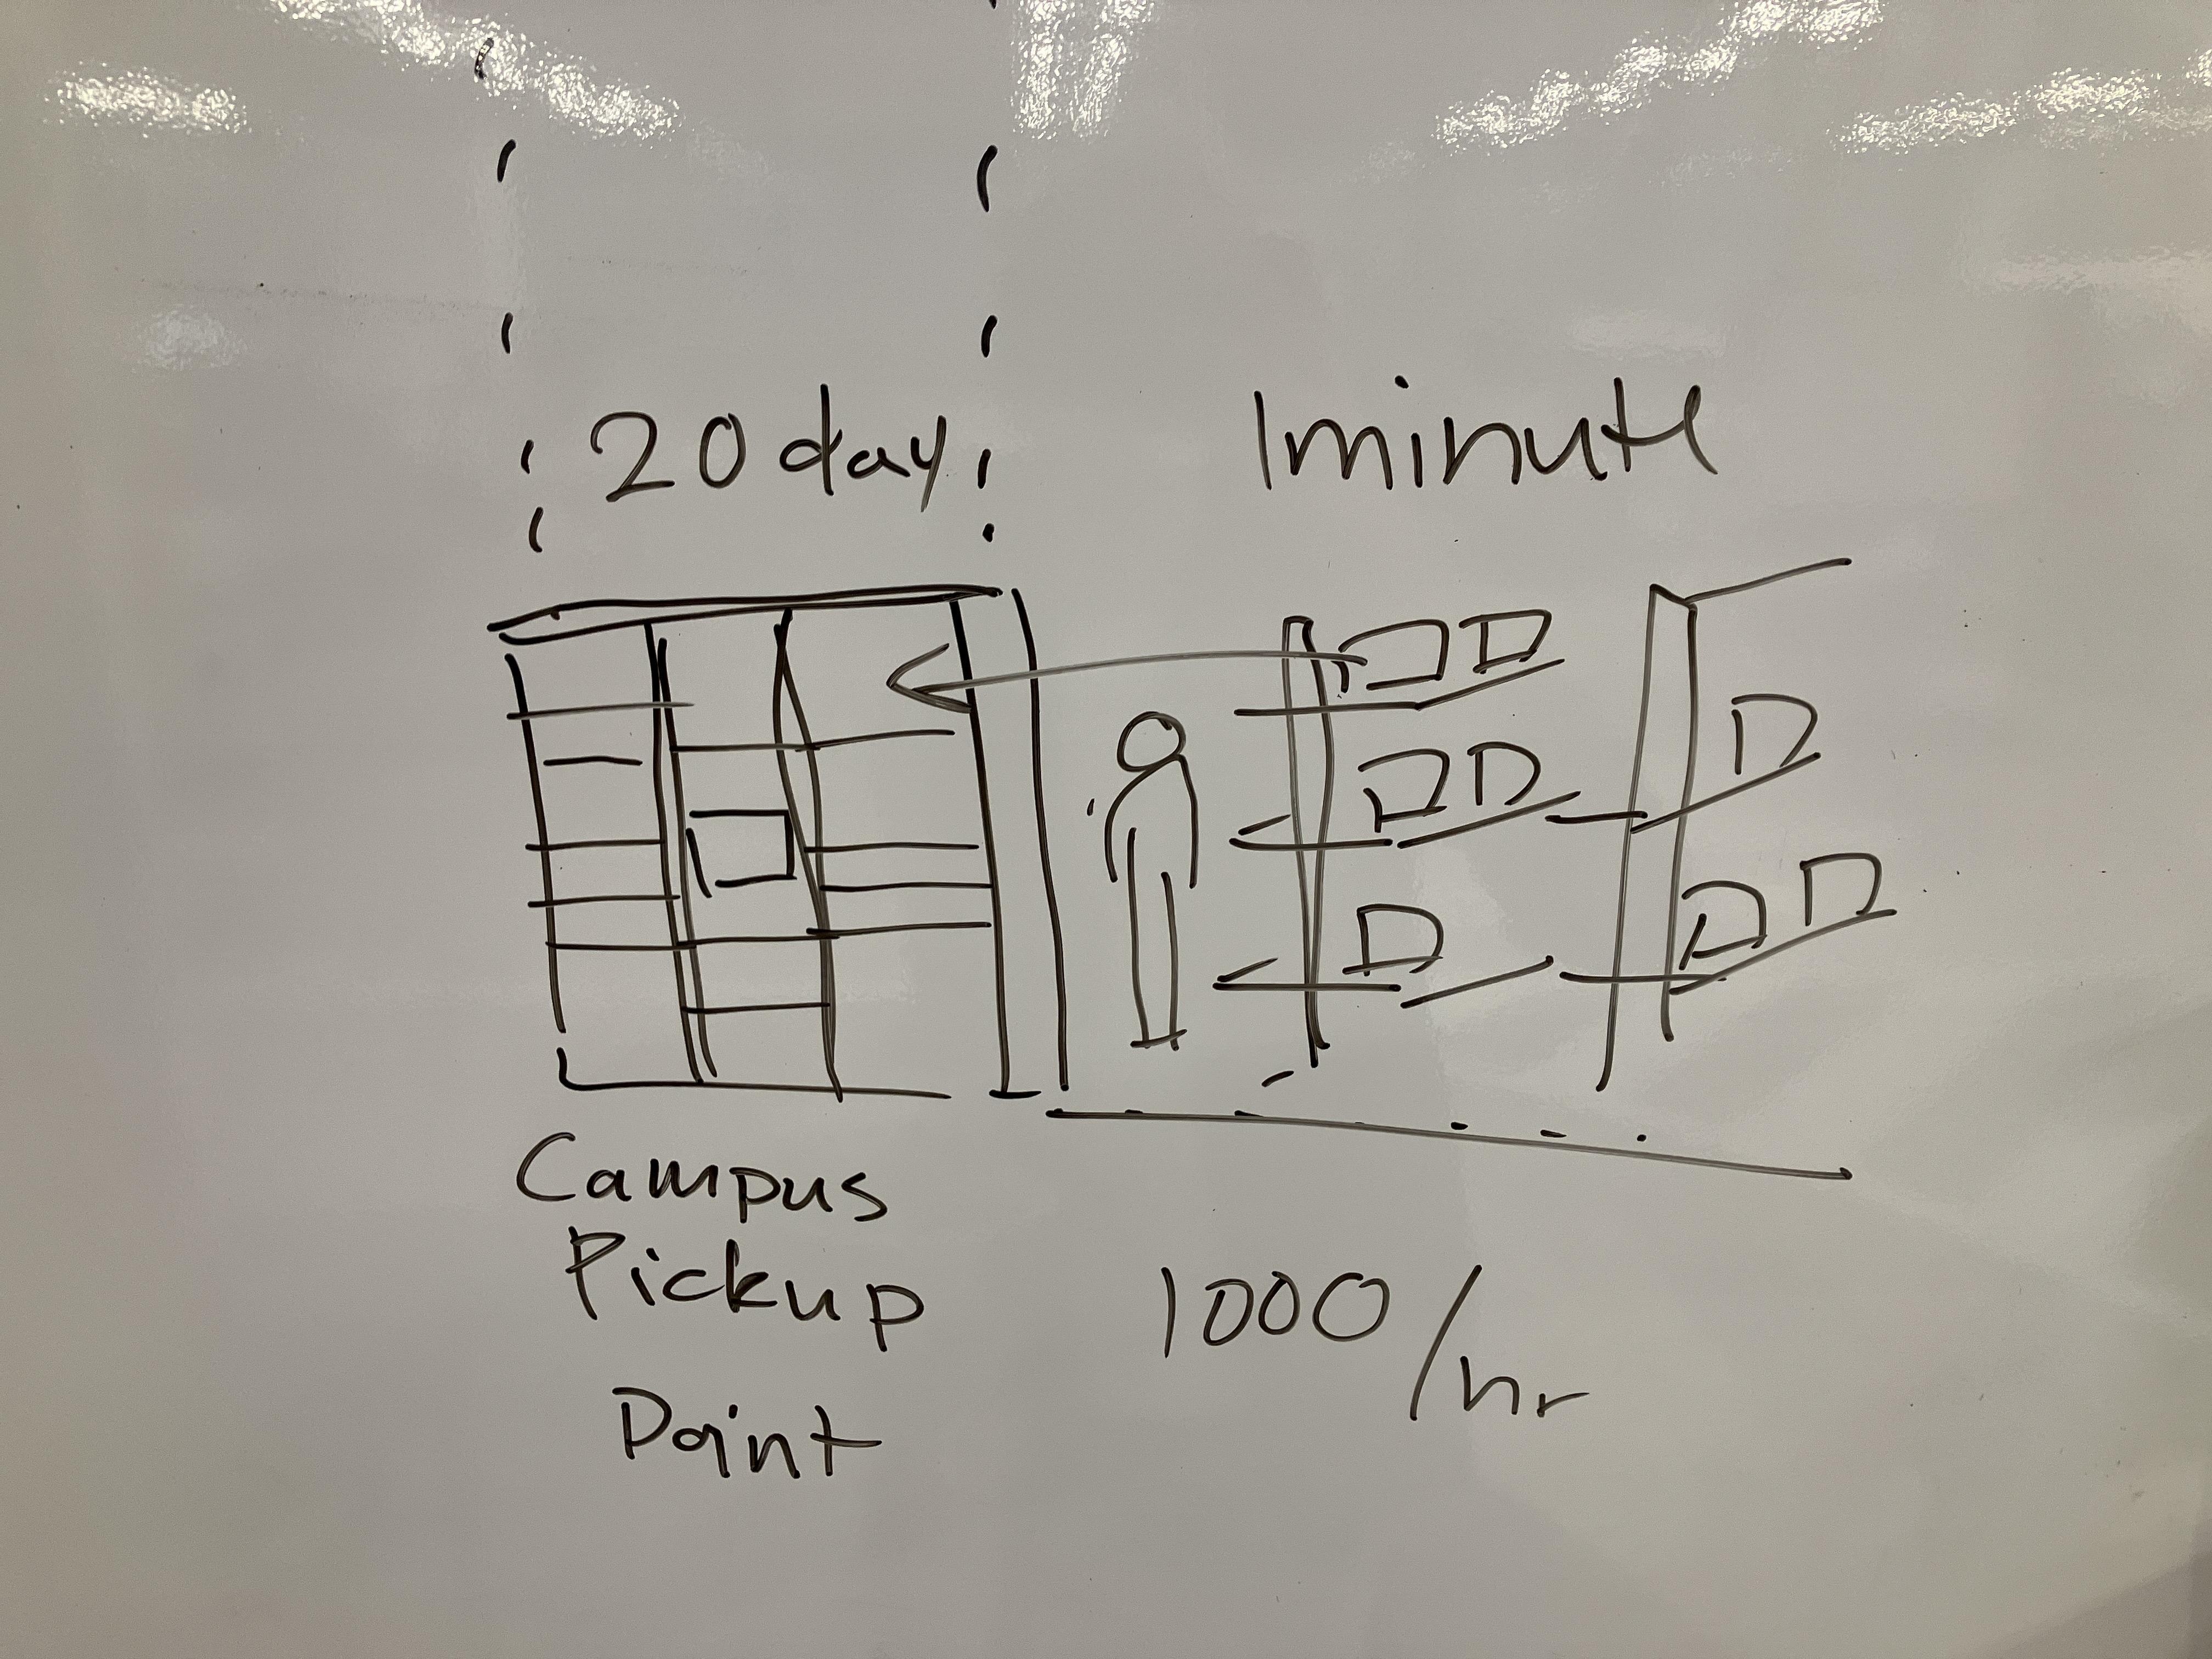 20 day
1minute
Campus
Pickup
Point
1000/hr